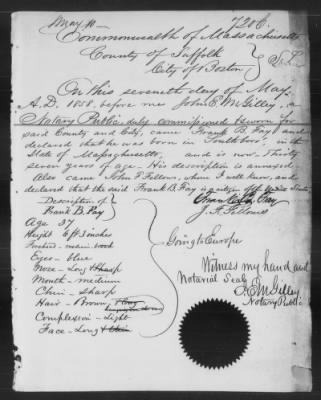 May 10 — 7206.
Commonwealth of Massachusetts
County of Suffolk } S.S.
City of Boston
On this seventh day of May
A.D. 1858. before me John E. McGilley, a
Notary Public, duly commissioned & sworn for
said County and City, came Frank B. Fay and
declared that he was born in Southboro, in the
State of Massachusetts, and is now, Thirty
seven years of age. His description is annexed.
Also came John F. Fellows, whom I well know, and
declared that the said Frank B. Fay is a citizen of the United States
Description of
Frank B. Fay
J. F. Fellows
Age 37
Height 6 ft 3 inches
Forehead - medium
Eyes - blue
Nose - Long & Sharp
Mouth - medium
Chin - sharp
Hair - Brown,
Complexion - Light
Face - Long & thin
Going to Europe
Witness my hand and
Notarial Seal
J. E. McGilley
Notary Public